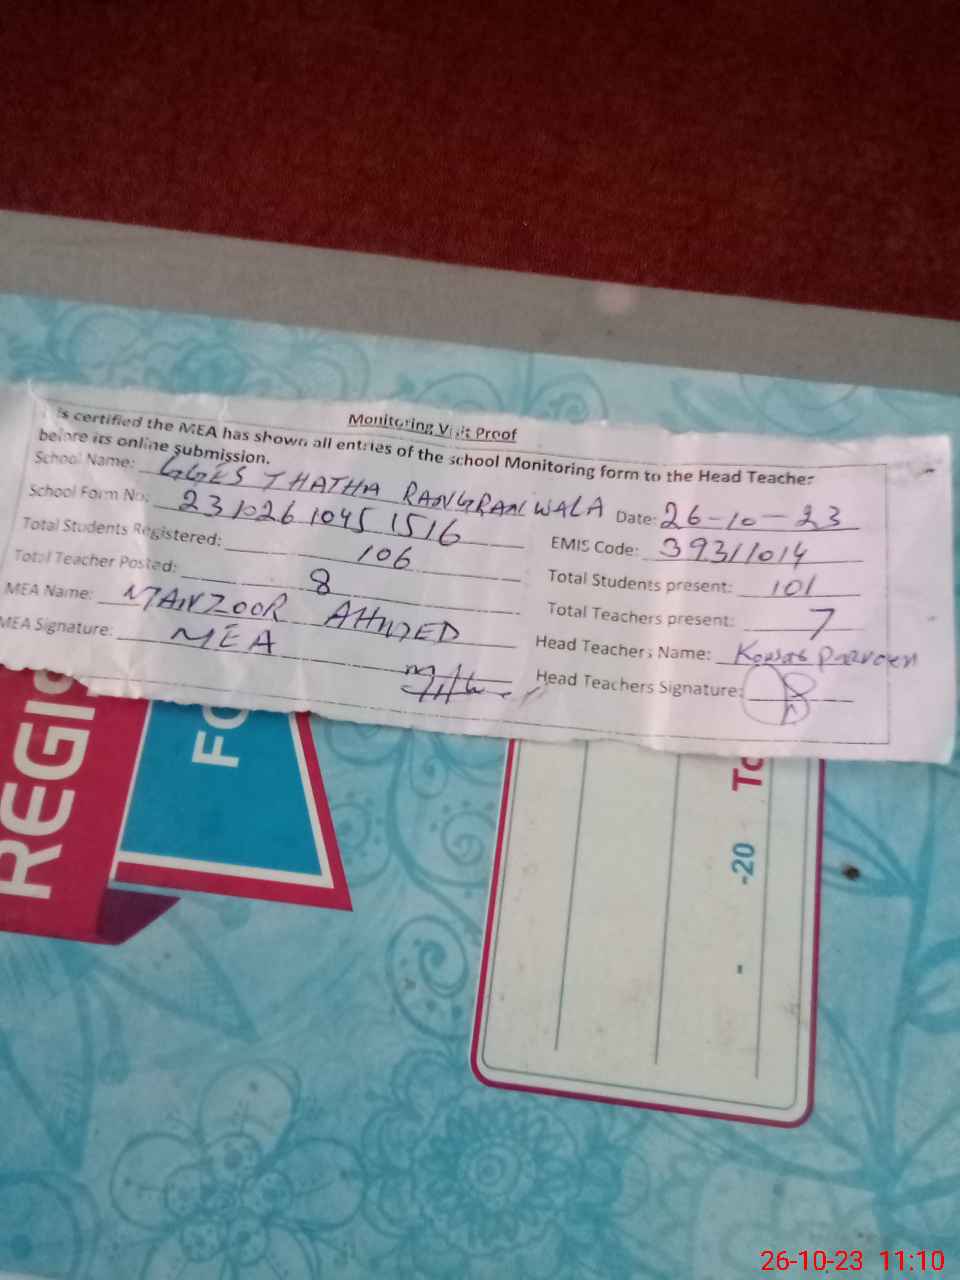 Monitoring Visit Proof
is certified the MEA has shown all entries of the school Monitoring form to the Head Teacher
before its online submission.
School Name: GGES THATHA RANGRANWALA Date: 26-10-23
School Form No: 231026 1045 1516 EMIS Code: 39311014
Total Students Registered: 106 Total Students present: 101
Total Teacher Posted: 8 Total Teachers present: 7
MEA Name: MANZOOR AHMED Head Teachers Name: Kousar Parveen
MEA Signature: MEA Head Teachers Signature:
REGI
FO
To
- -20
26-10-23 11:10